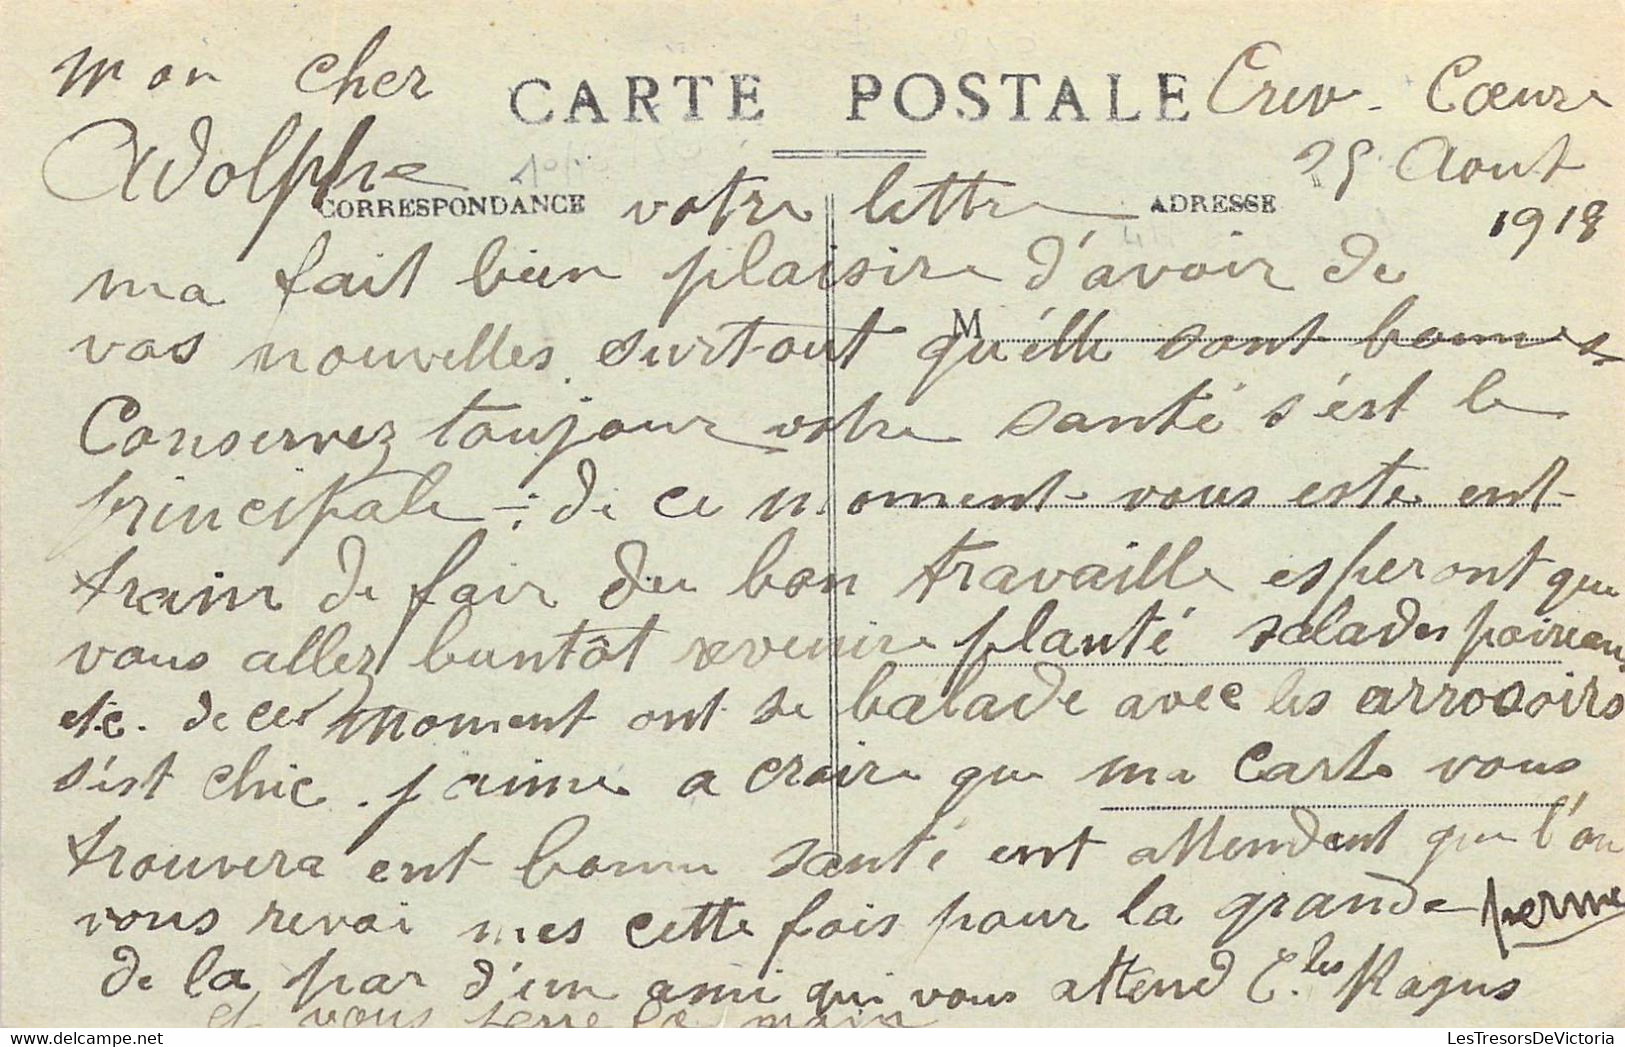 mon cher
CARTE POSTALE
Crev-Coeur
25 Aout
1918
Adolphe
CORRESPONDANCE
votre lettre
ADRESSE
ma fait bien plaisire d'avoir de
vos nouvelles surtout qu'élle sont bonnes
M
Conservez toujour votre santé s'ést le
principale - : de ce moment vous este ent-
train de fair du bon travaille esperont que
vous allez bientôt revenire planté salades poireaux
etc. de ce moment ont se balade avec les arrosoirs
s'ést chic. j'aime a croire que ma carte vous
trouvera ent bonne santé ent attendent que l'on
vous revoi mes cette fois pour la grande perme
de la par d'un ami qui vous attend C.les Ragus
et vous serre la main
LesTresorsDeVictoria